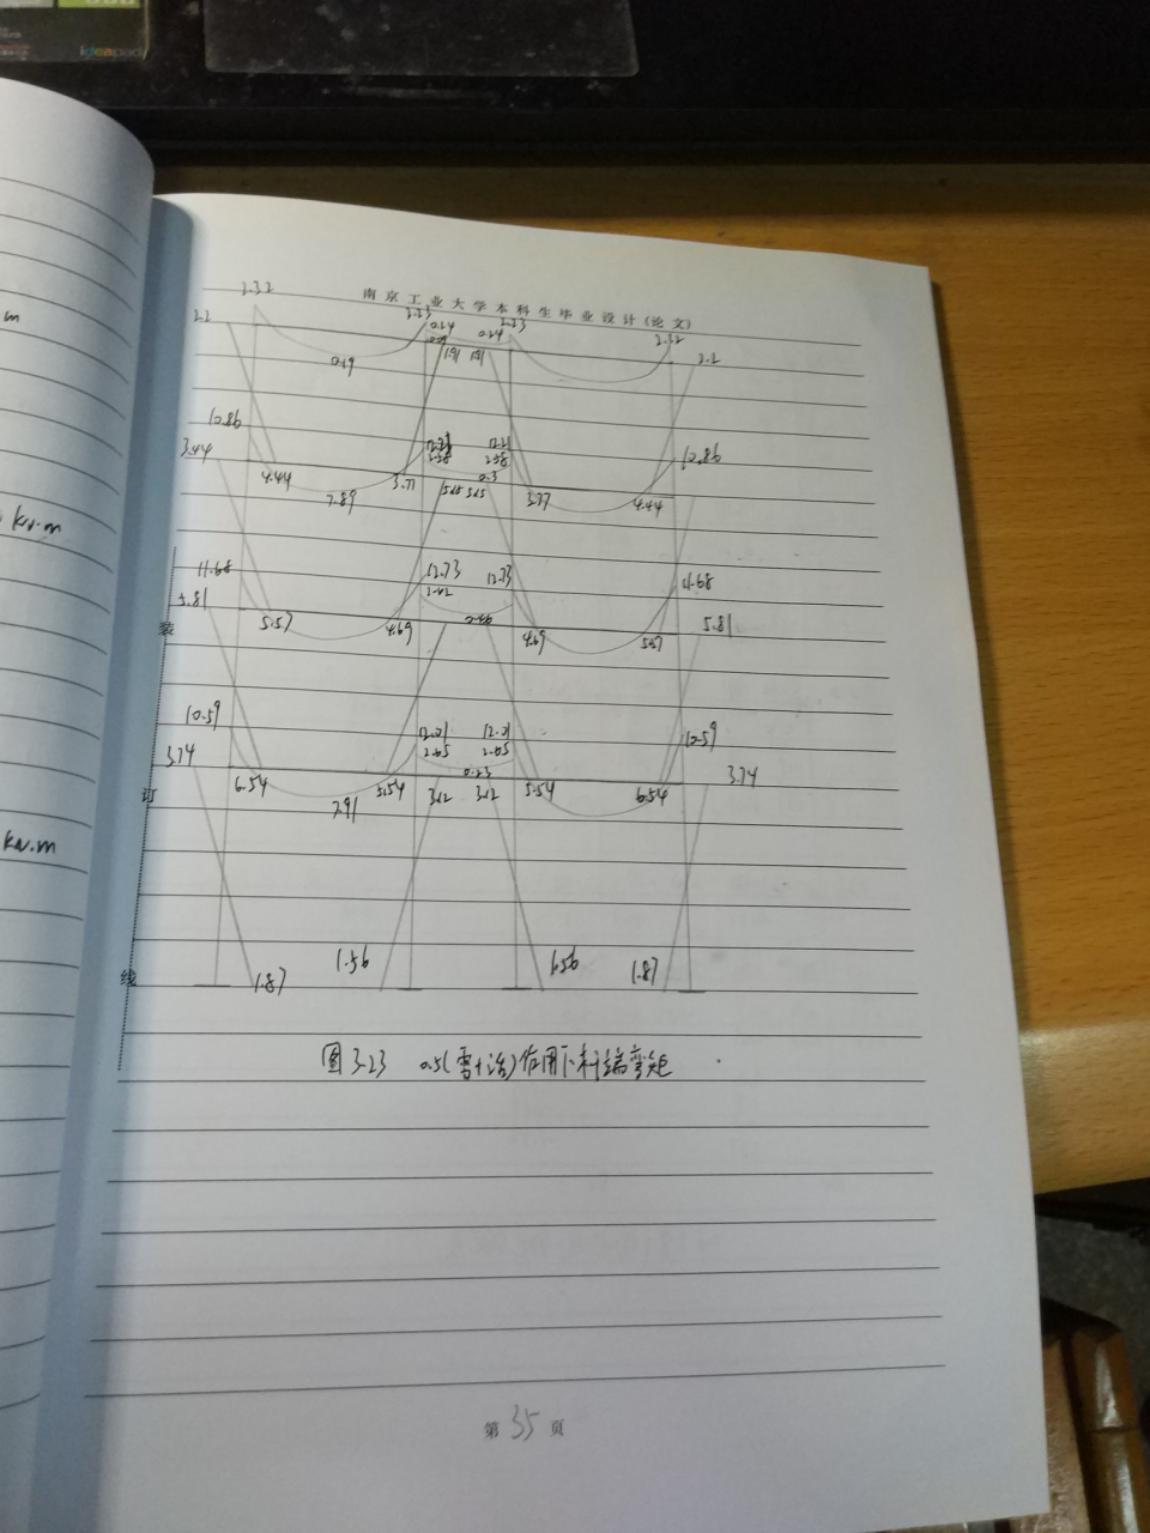 ideapad
m
kN.m
kN.m
南京工业大学本科生毕业设计(论文)
2.32
2.2 2.23 2.23 2.32
0.24 0.24
0.19 1.91 2.2
10.86 12.21
3.44 2.58 2.58 10.86
4.44 3.77 0.3
7.89 3.77 4.44
11.68 12.73 12.73 4.68
5.81 5.81
装
5.57 4.69 4.69 5.57
10.59 12.21 12.21 10.59
3.74 2.65 2.65 3.74
0.23
6.54 5.54 3.12 3.12 5.54 6.54
订
7.91
1.56 1.56 1.87
线
1.87
图3.23 0.5(雪+活)作用下杆端弯矩
第35页